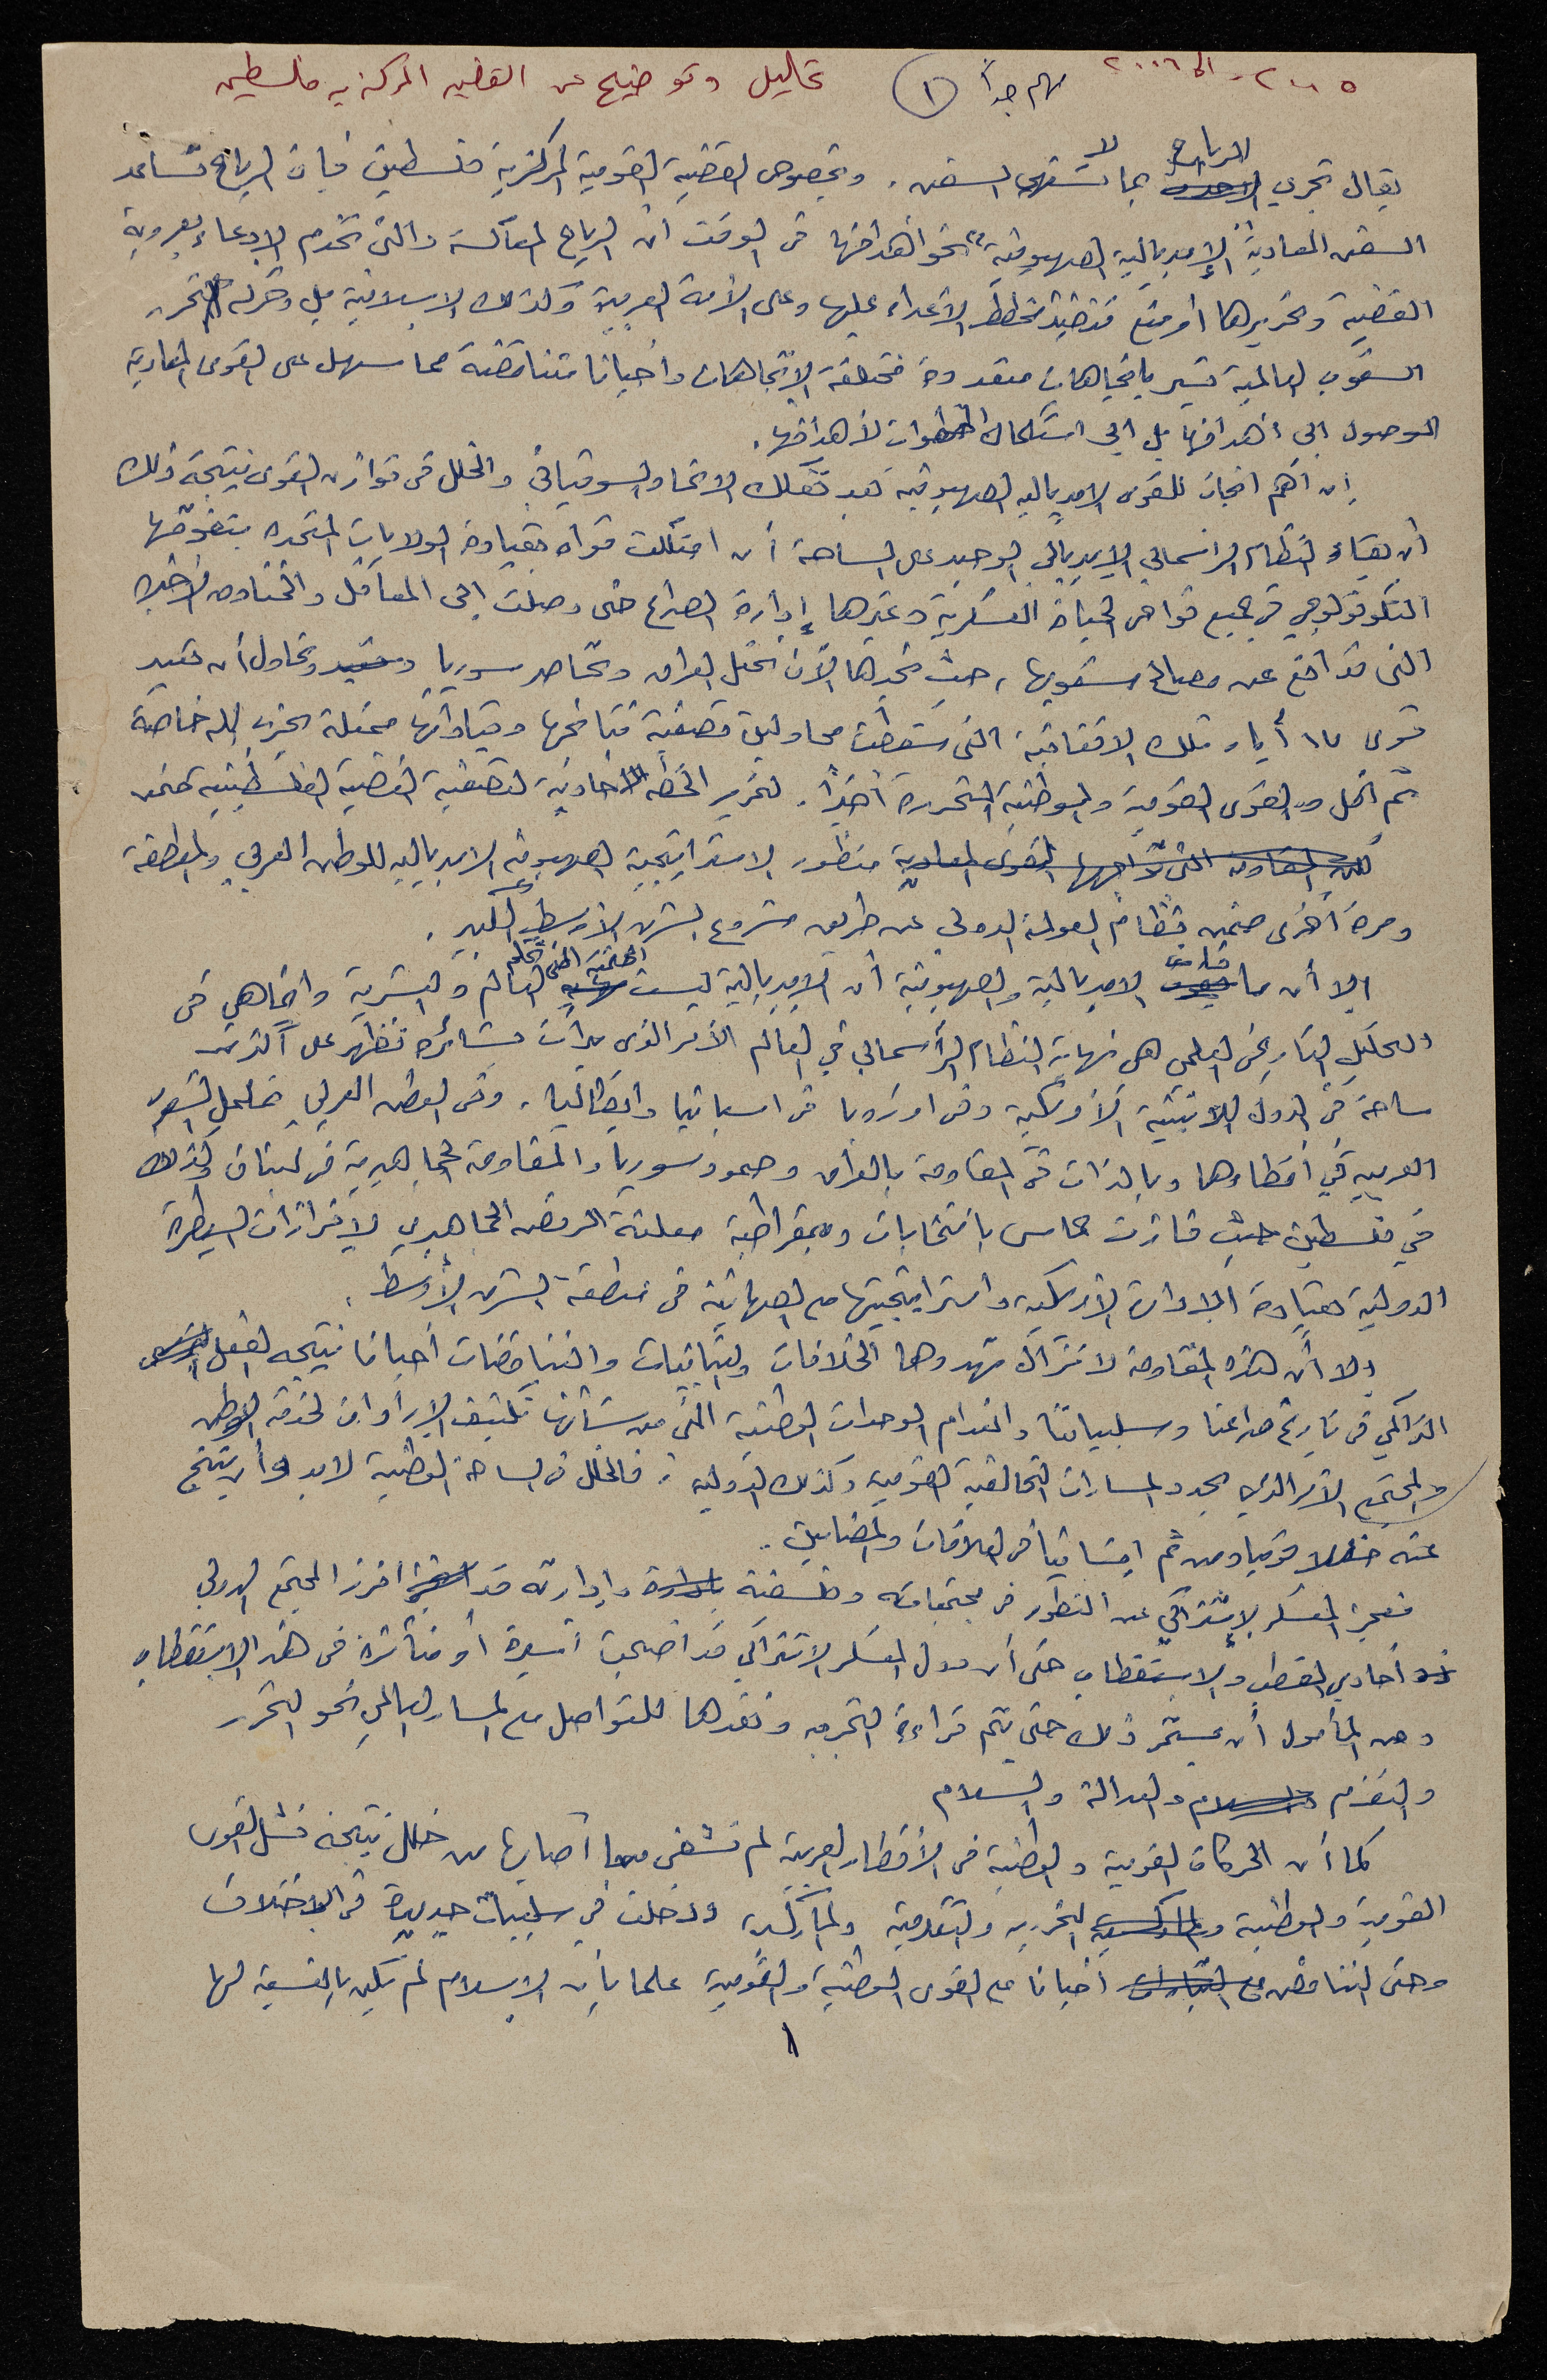 ٢٠٠٥ - الى ٢٠٠٦
مهم جداً ١ تحاليل وتوضيح عن القضيه المركزيه فلسطين
يقال تجري الرياح بما لا تشتهي السفن. وبخصوص القضية القومية المركزية فلسطين فإن الرياح تساعد
السفن المعادية "الإمبريالية الصهيونية" نحو أهدافها في الوقت أن الرياح المعاكسة والتي تخدم الإدعاء بعروبة
القضية وتحريرها أو منع تنفيذ مخطط الأعداء عليها وعلى الأمة العربية وكذلك الإسلامية بل وحركة التحرر
الشعوب العالمية تسير باتجاهات متعددة مختلفة الاتجاهات وأحيانا متناقضة مما سهل على القوى المعادية
الوصول إلى أهدافها بل إلى استكمال الخطوات لأهدافها.
إن أهم انجاز للقوى الامبريالية الصهيونية بعد تفكك الاتحاد السوفياتي والخلل في توازن القوى نتيجة ذلك
أن بقاء النظام الرأسمالي الإمبريالي الوحيد على الساحة أن امتلكت قواه بقيادة الولايات المتحده بتفوقها
التكنولوجي في جميع نواحي الحياة العسكرية وغيرها إدارة الصراع حتى وصلت إلى المعاقل والخنادق الأخيره
التي تدافع عن مصالح شعوبها، حيث نجدها الآن تحتل العراق وتحاصر سوريا وتحاول أن تعيد
قوى ١٧ أيار تلك الاتفاقية التي سقطت محاولين تصفية وقياداتها ممثلة بحزب الله خاصة
ثم الكل والقوى القومية والوطنية المتحررة أخيراً. لتمرير الخطه الأحادية لتصفية القضية الفلسطينية ضمن
منظور الاستراتيجية الصهيونية الامبريالية للوطن العربي والمنطقة
ومرة أخرى ضمن نظام العولمة الدولي عن طريق مشروع الشرق الأوسطي الكبير.
إلا أن ما الامبريالية والصهيونية أن الإمبريالية ليست الحتمية التي تحكم العالم والبشرية وإنما هي في
التحليل التاريخي العلمي هي نهاية النظام الرأسمالي في العالم الأمر الذي بدأت بشائره تظهر على أكثر من
ساحة في الدول اللاتينية الأمريكية وفي اوروبا في اسبانيا وايطاليا، وفي الوطن العربي تململ الشعوب
العربية في أقطارها وبالذات في المقاومة بالعراق وصمود سوريا والمقاومة الجماهيرية في لبنان وكذلك
في فلسطين حيث فازت حماس بانتخابات ديمقراطية معلنة الرفض الجماهيري لإفرازات السيطرة
الدولية بقيادة الإدارة الأمريكية واستراتيجيتها مع الصهاينة في منطقة الشرق الأوسط.
إلا أن هذه المقاومة لا تزال تهددها الخلافات والتباينات والتناقضات أحيانا نتيجة الفعل
التراكمي في تاريخ صراعنا وسلبياتنا وانعدام الوحدات الوطنية التي من شأنها تكثيف الإرادات لخدمة الوطن
والمجتمع الأمر الذي يحدد المسارات التحالفية القومية وكذلك الدولية. فالخلل في الساحة الوطنية لابد وأن ينتج
عنه خللا قوميا ومن ثم إنسانيا في العلاقات والمضامين.
فعجز المعسكر الاشتراكي عن التطور في مجتمعاته وفلسفة وإدارته قد افرز المجتمع الدولي
أحادي القطب والاستقطاب حتى أن دول المعسكر الاشتراكي قد اضحت أسيرة أو متأثرة في هذا الاستقطاب
ومن المأمول أن يستمر ذلك حتى يتم قراءة التجربه ونقدها للتواصل مع المسار العالمي نحو التحرر
والتقدم والعدالة والسلام
كما أن الحركات القومية والوطنية في الأقطار العربية لم تشفى مما أصابها من خلل نتيجة فشل القوى
القومية والوطنية التحررية والتقدمية والماركسية ودخلت في سلبيات جديدة في الاختلاف
وحتى التناقض أحيانا مع القوى الوطنية والقومية علما بأن الإسلام لم يكن بالنسبة لها
١